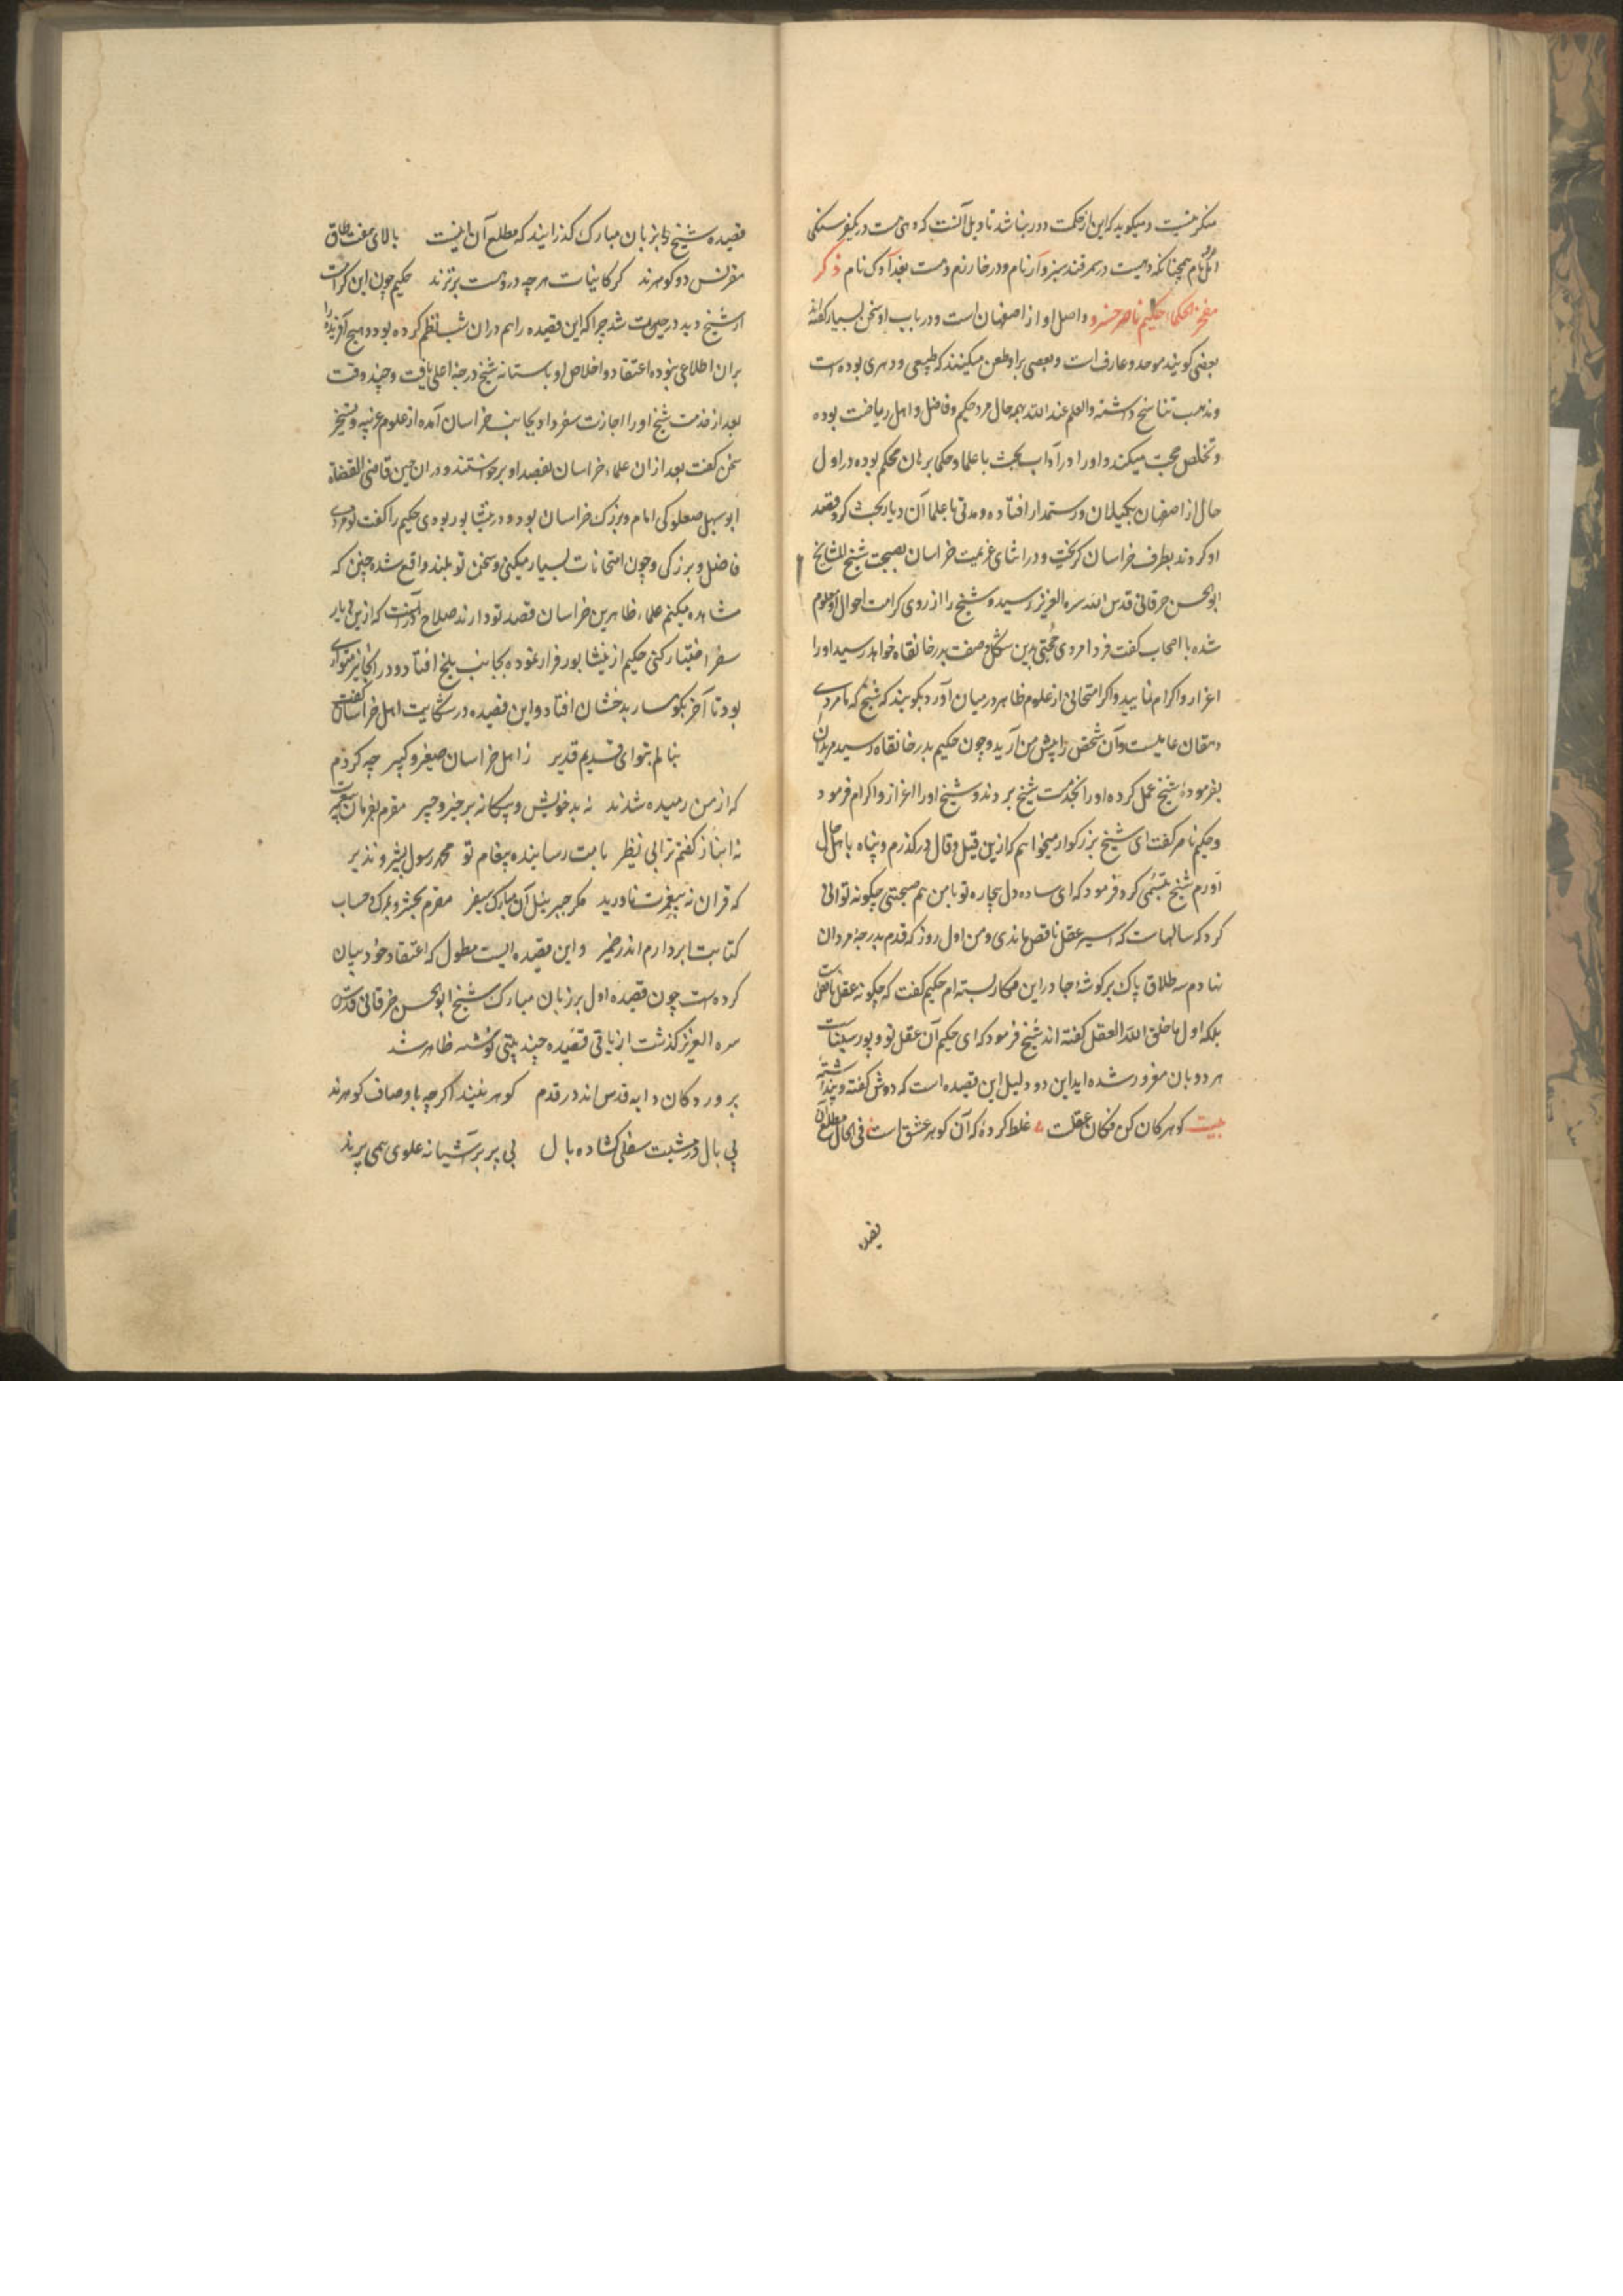 منکر نیست و میکوید که این از حکمت دور نباشد تاویل آنست که دهی هست در یکفرسنکی
امل نام همچنانکه دهیست در سمرقند سبزوار نام و در خوارزم دهست بغداوک نام ذکر
مفخر الحکما حکیم ناصر خسرو و اصل او از اصفهان است و در باب او سخن بسیار کفته‌اند
بعضی کویند موحد و عارف است و بعضی برو طعن میکنند که طبیعی و دهری بوده است
و مذهب تناسخ داشته والعلم عند الله بهمه حال مرد حکیم و فاضل و اهل ریاضت بوده
و تخلص حجت میکند و او را در آداب بحث با علما و حکما برهان محکم بوده در اول
حال از اصفهان بکیلان و رستمدار افتاده و مدتی با علما آن دیار بحث کرد قصد
او کردند بطرف خراسان کریخت و در اثنای عزیمت خراسان بصحبت شیخ المشایخ
ابو الحسن خرقانی قدس الله سره العزیز رسید و شیخ را از روی کرامت احوال او معلوم
شده با اصحاب کفت فردا مردی حجتی بدین شکل و صفت بدر خانقاه خواهد رسید او را
اعزاز و اکرام نمایید و اکر امتحانی از علوم ظاهر در میان آورد بکویید که شیخ ما مردی
دهقان عامیست و آن شخص را پیش من آرید و چون حکیم بدر خانقاه رسید مریدان
بفرمودۀ شیخ عمل کرده او را بخدمت شیخ بردند و شیخ او را اعزاز و اکرام فرمود
و حکیم ناصر کفت ای شیخ بزرکوار میخواهم که ازین قیل و قال در کذرم و پناه باهل حال
آورم شیخ تبسمی کرد و فرمود که ای ساده دل بیچاره تو با من هم صحبتی چکونه توانی
کرد که سالهاست که اسیر عقل ناقص ماندی و من اول روز که قدم بدرجۀ مردان
نهادم سه طلاق پاک بر کوشۀ چادر این مکار بسته ام حکیم کفت که چکونه عقل ناقص است
بلکه اول ما خلق الله العقل کفته اند شیخ فرمود که ای حکیم آن عقل تو و پور سیناست
هر دو بان مغرور شده اید این دو دلیل این قصیده است که دوش کفته و پنداشته
بیت کوهر کان کن فکان عقلست غلط کردۀ که آن کوهر عشق است فی الحال مطلع آن
قصیده
قصیده شیخ را بزبان مبارک کذرانید که مطلع آن اینست بالای هفت طاق
مقرنس دو کوهرند کز کاینات هر چه دروست برترند حکیم چون این کرامت
از شیخ دید در حیرت شد چرا که این قصیده را هم در آن شب نظم کرده بود و هیچ آفریده را
بران اطلاعی نبوده اعتقاد و اخلاص او باستانه شیخ درجۀ اعلی یافت و چند وقت
بعد از خدمت شیخ او را اجازت سفر داد و بجانب خراسان آمده از علوم غریبه و تسخیر
سخن کفت بعد از ان علماء خراسان بقصد او برخواستند و در ان حین قاضی القضاة
ابو سهل صعلوکی امام و بزرک خراسان بود و در نیشابور بودی حکیم را کفت تو مردی
فاضل و بزرکی و چون امتحانات بسیار میکنی و سخن تو بلند واقع شده چنین که
مشاهده میکنم علماء ظاهرین خراسان قصد تو دارند صلاح در آنست که ازین دیار
سفر اختیار کنی حکیم از نیشابور فرار نموده بجانب بلخ افتاد و در انجا نیز متواری
بود تا آخر بکوهسار بدخشان افتاد و این قصیده در شکایت اهل خراسان کفت
بنالم بتو ای قدیم قدیر ز اهل خراسان صغیر و کبیر چه کردم
که از من رمیده شدند نه بد خویش و بیکانه بر خیر و چیر مقرم بفرمان پیغمبرت
نه انباز کفتم ترا نی نظیر بامت رسانیده پیغام تو محمد رسول بشیر و نذیر
که قران نه پیغمبرت ناورید مکر جبرئیل آن مبارک سفیر مقرم بحشر و بمرک و حساب
کتابت ابر دارم اندر ضمیر و این قصیده ایست مطول که اعتقاد خود بیان
کرده است چون قصیده اول بر زبان مبارک شیخ ابو الحسن خرقانی قدس
سره العزیز کذشت از باقی قصیده چند بیتی نوشته ظاهر شد
پروردکان دایه قدس اند در قدم کوهر نیند اکرچه باوصاف کوهرند
بی بال در نشیب سفلی کشاده بال بی پر بر آشیانه علوی همی پرند